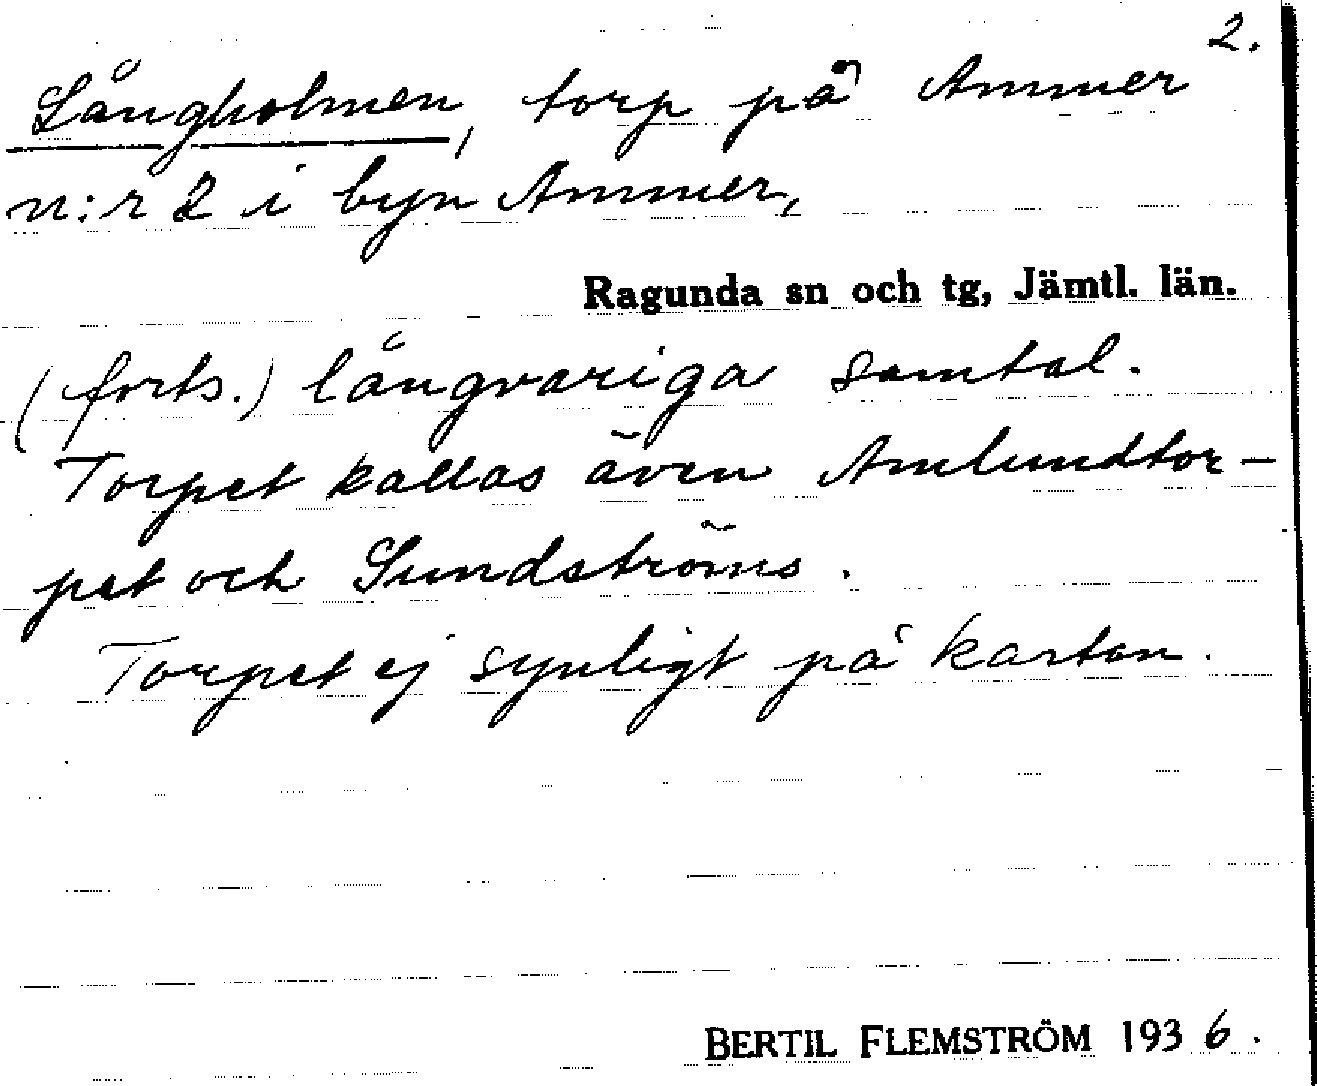 2.
Långholmen, torp på Ammer
n:r 2 i byn Ammer,
Ragunda sn och tg, Jämtl. län.
(forts.) långvariga samtal.
Torpet kallas även Amlundtor-
pet och Sundströms.
Torpet ej synligt på kartan.
BERTIL FLEMSTRÖM 1936.